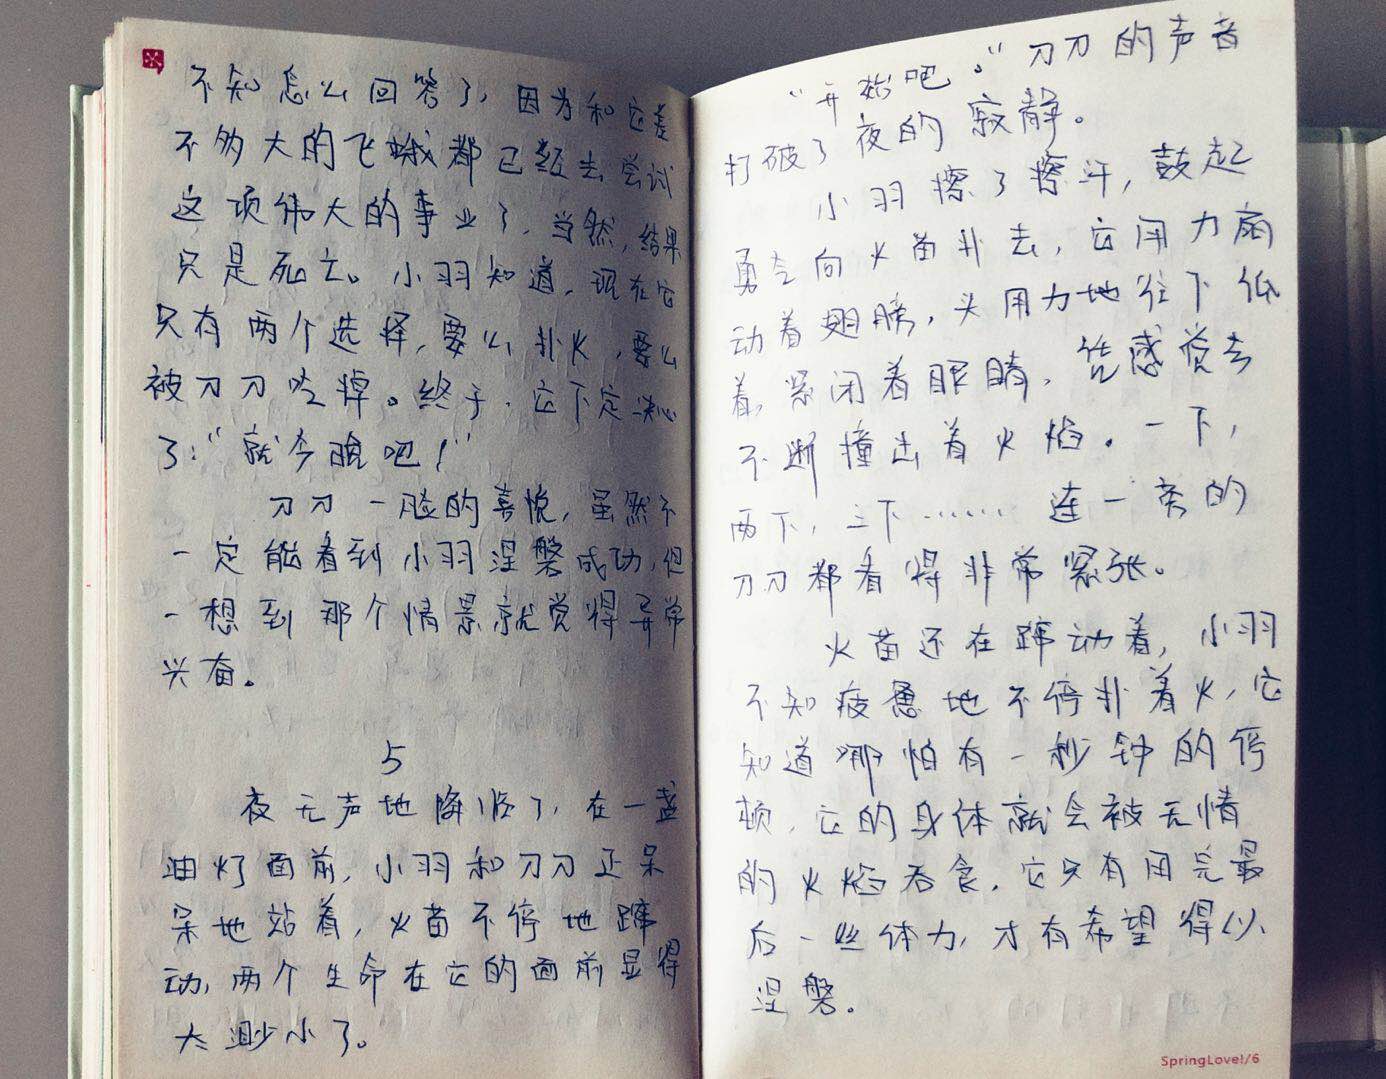 不知怎么回答了，因为和它差
不多大的飞蛾都已经去尝试
这项伟大的事业了，当然，结果
只是死亡。小羽知道，现在它
只有两个选择，要么扑火，要么
被刀刀吃掉。终于，它下定决心
了：“就今晚吧！”
刀刀一脸的喜悦，虽然不
一定能看到小羽涅磐成功，但
一想到那个情景就觉得异常
兴奋。
5
夜无声地降临了，在一盏
油灯面前，小羽和刀刀正呆
呆地站着，火苗不停地蹿
动，两个生命在它的面前显得
太渺小了。
“开始吧。”刀刀的声音
打破了夜的寂静。
小羽擦了擦汗，鼓起
勇气向火苗扑去，它用力扇
动着翅膀，头用力地往下低
着，紧闭着眼睛，凭感觉去
不断撞击着火焰。一下，
两下，三下……连一旁的
刀刀都看得非常紧张。
火苗还在蹿动着，小羽
不知疲惫地不停扑着火，它
知道哪怕有一秒钟的停
顿，它的身体就会被无情
的火焰吞食，它只有用完最
后一丝体力，才有希望得以
涅磐。
SpringLove!/6